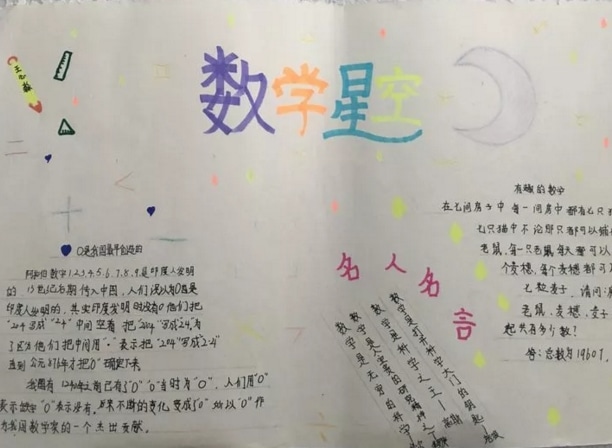 数学星空
有趣的数学
在七间房子中每一间房中都有七只
七只猫中不论那只都可以
老鼠,每一只老鼠每天都可以
个麦穗,每个麦穗都可
七粒麦子,请问:
老鼠、麦穗、麦子
起共有多少数?
答:总数为19607.
0是我国最早创造的
阿拉伯数字1.2.3.4.5.6.7.8.9.是印度人发明
的 13世纪后期传入中国,人们误以为0也是
印度人发明的,其实印度发明时没有0他们把
"204"写成"2 4"中间空着 把
了区分他们把中间用"·"表示把"204"写成"2·4"
直到公元876年才把"0"确定下来
我国有1240年之前已有"0""0"当时为"O",人们用"O"
表示没有,后来不断的变化,变成"0"所以"0"作
为我国数学家的一个杰出贡献.
名人名言
数学是打开科学大门的钥匙
数学是科学之王
数学是人类的
数学是无穷的科学